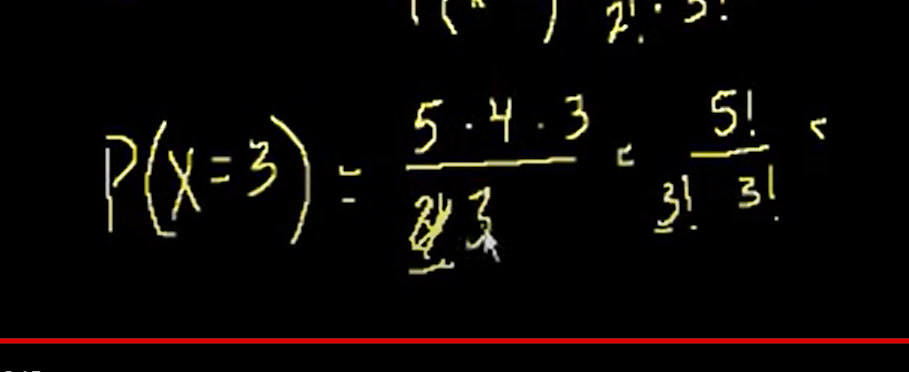 2! · 3!
P(X=3) = 5 · 4 · 3 / 3 = 5! / 3! 3!